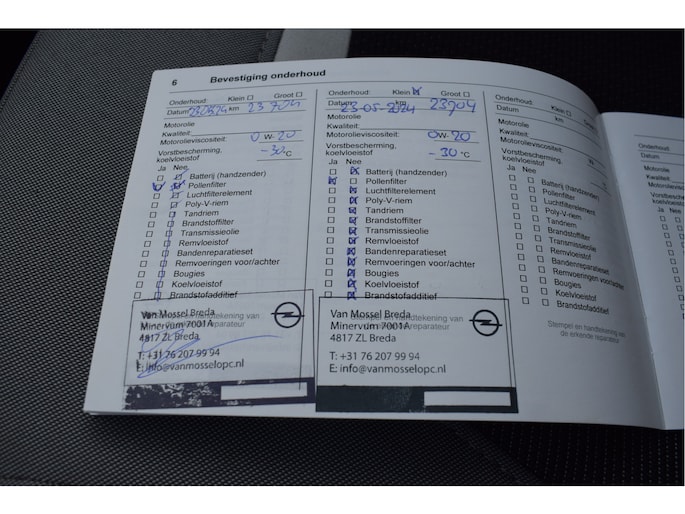 6 Bevestiging onderhoud
Onderhoud: Klein ☐ Groot ☐
Datum km 23704
Motorolie
Kwaliteit:
Motorolieviscositeit: 0 W- 20
Vorstbescherming, koelvloeistof - 30 °C
Ja Nee
Batterij (handzender)
Pollenfilter
Luchtfilterelement
Poly-V-riem
Tandriem
Brandstoffilter
Transmissieolie
Remvloeistof
Bandenreparatieset
Remvoeringen voor/achter
Bougies
Koelvloeistof
Brandstofadditief
Van Mossel Breda
Minervum 7001A
4817 ZL Breda
T: +31 76 207 99 94
E: info@vanmosselopc.nl
Onderhoud: Klein ☒ Groot ☐
Datum 23-05-2024 km 23704
Motorolie
Kwaliteit:
Motorolieviscositeit: 0W- 20
Vorstbescherming,
koelvloeistof - 30 °C
Ja Nee
Batterij (handzender)
Pollenfilter
Luchtfilterelement
Poly-V-riem
Tandriem
Brandstoffilter
Transmissieolie
Remvloeistof
Bandenreparatieset
Remvoeringen voor/achter
Bougies
Koelvloeistof
Brandstofadditief
Van Mossel Breda
Minervum 7001A
4817 ZL Breda
T: +31 76 207 99 94
E: info@vanmosselopc.nl
Onderhoud: Klein ☐ Groot ☐
Datum km
Motorolie
Kwaliteit:
Motorolieviscositeit: W-
Vorstbescherming,
koelvloeistof °C
Ja Nee
Batterij (handzender)
Pollenfilter
Luchtfilterelement
Poly-V-riem
Tandriem
Brandstoffilter
Transmissieolie
Remvloeistof
Bandenreparatieset
Remvoeringen voor/achter
Bougies
Koelvloeistof
Brandstofadditief
Stempel en handtekening van
de erkende reparateur
Onderhoud:
Datum
Motorolie
Kwaliteit:
Ja Nee